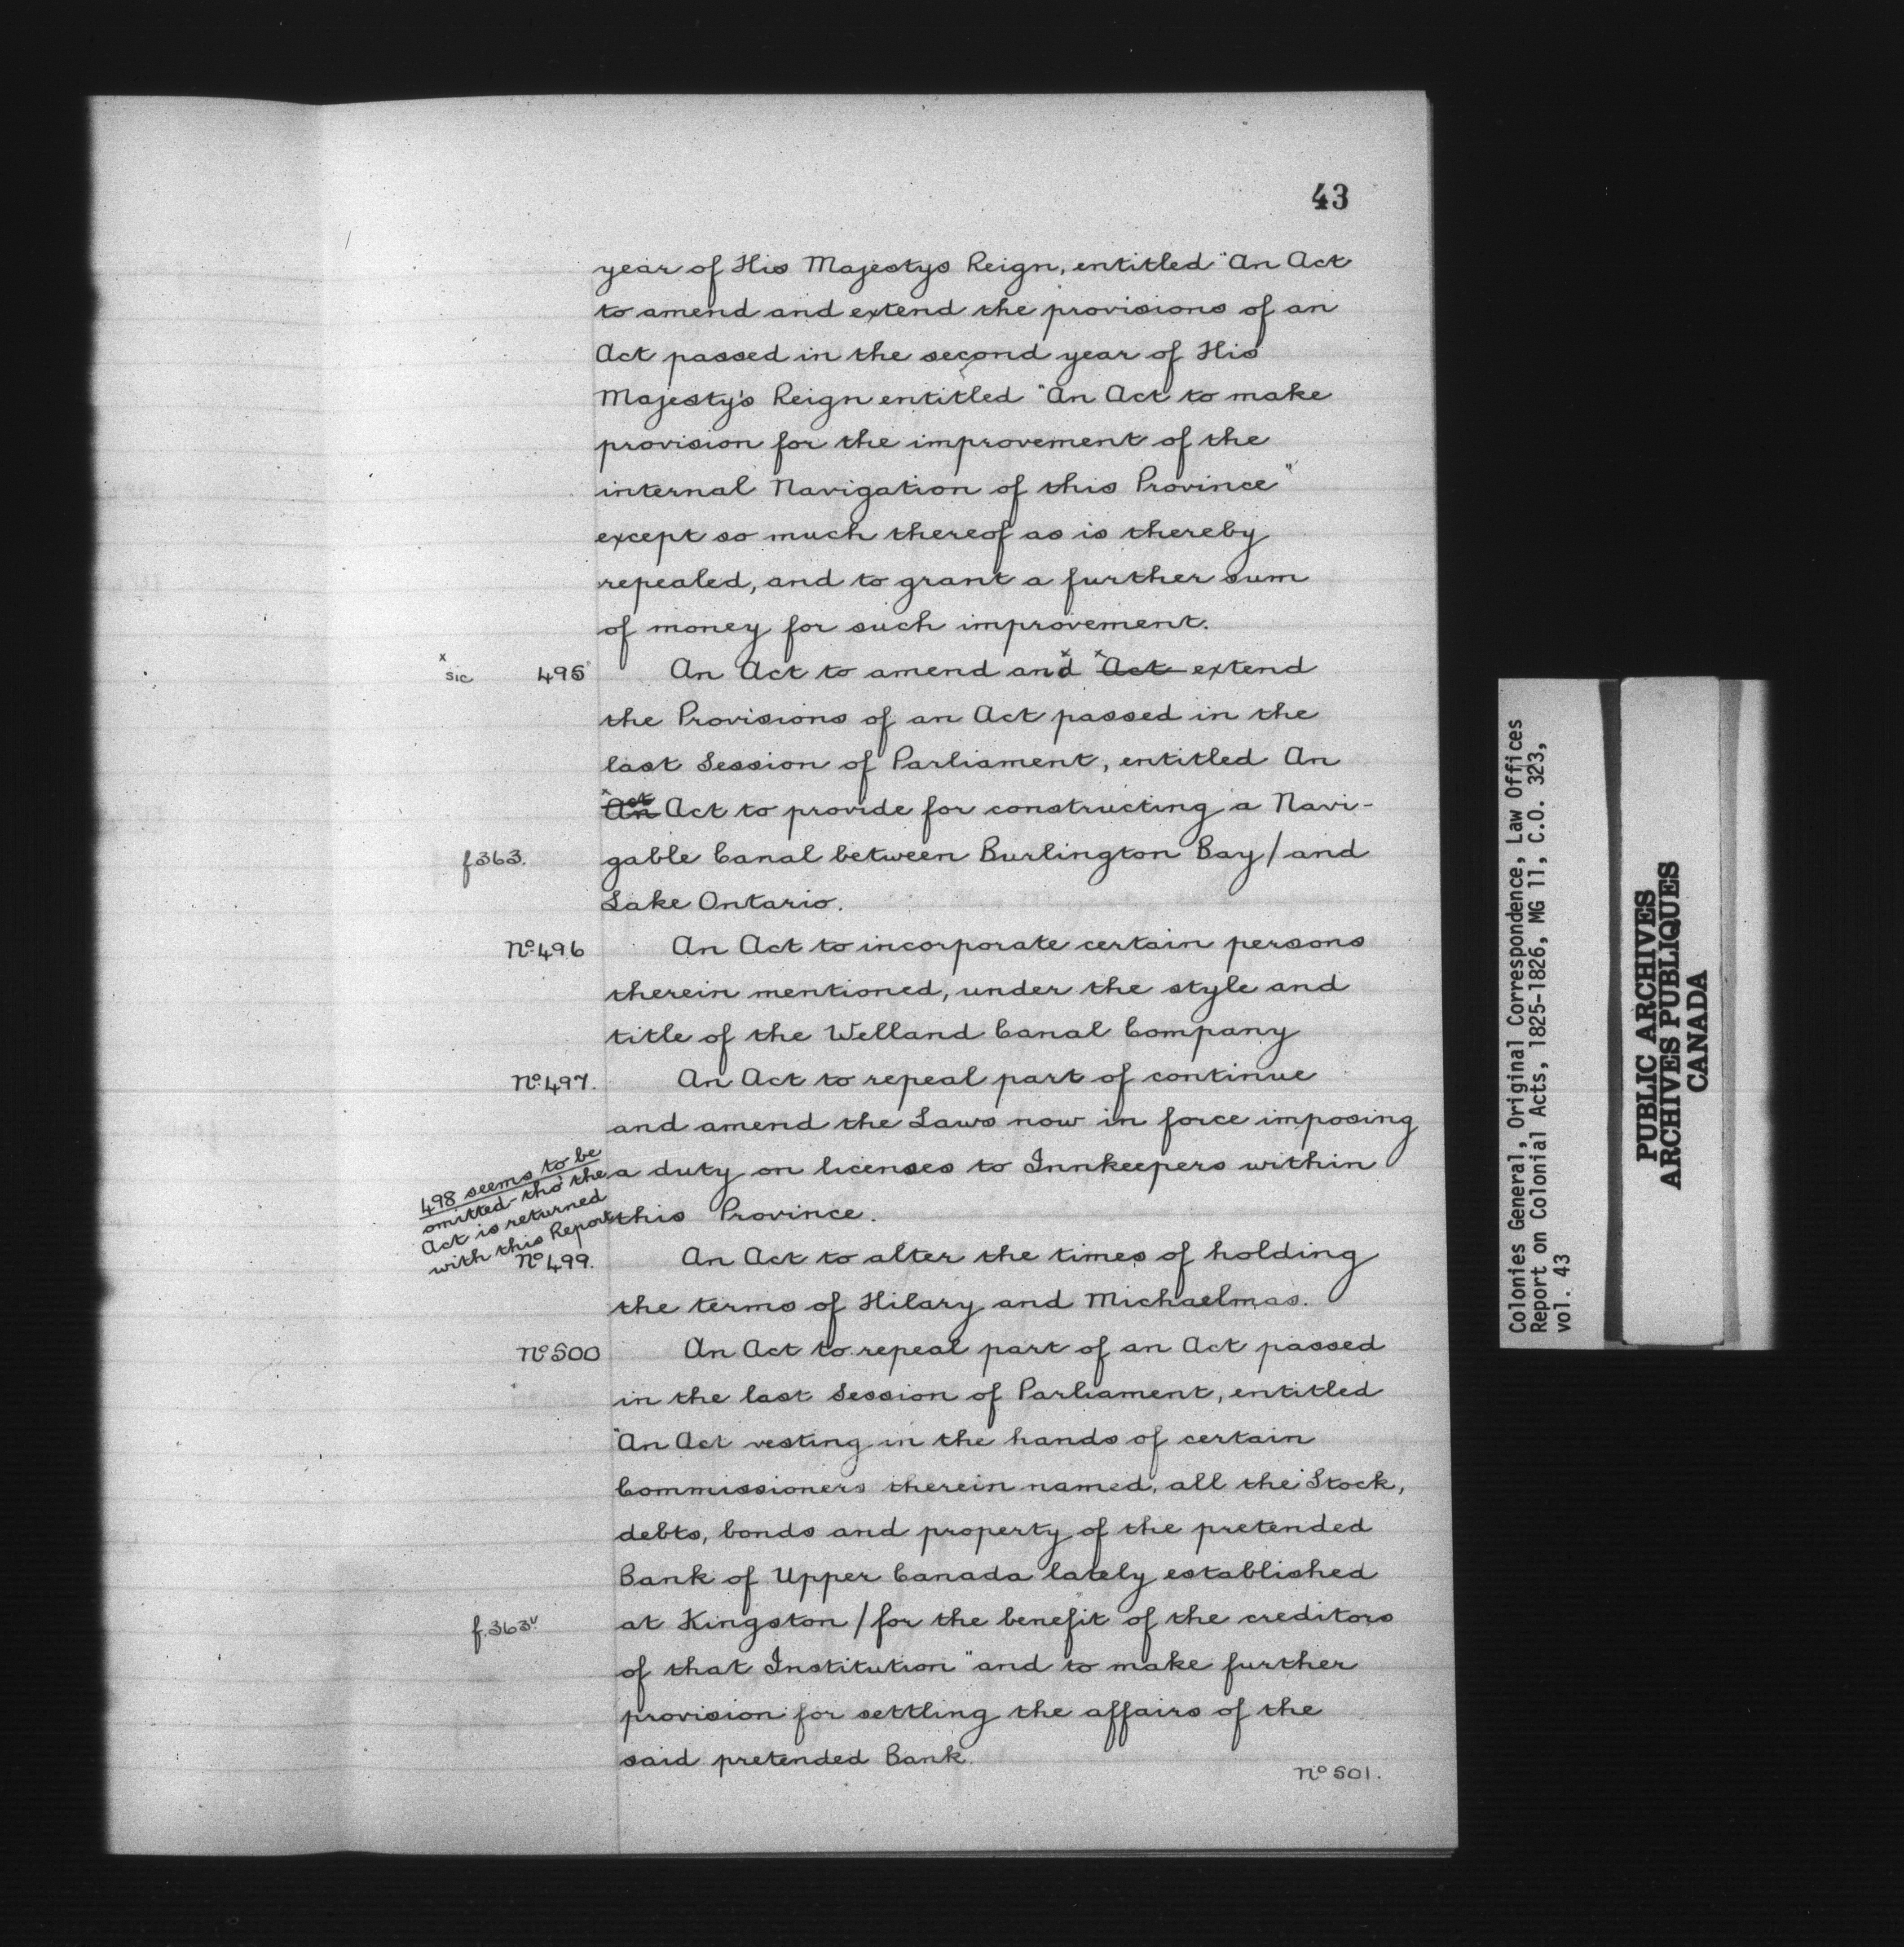 43
year of His Majestys Reign, entitled "An Act
to amend and extend the provisions of an
Act passed in the second year of His
Majesty's Reign entitled "An Act to make
provision for the improvement of the
internal Navigation of this Province"
except so much thereof as is thereby
repealed, and to grant a further sum
of money for such improvement.
x sic 495 An Act to amend and x x Act extend
the Provisions of an Act passed in the
last Session of Parliament, entitled An
x An Act to provide for constructing a Navi-
f363. gable Canal between Burlington Bay / and
Lake Ontario.
No. 496 An Act to incorporate certain persons
therein mentioned, under the style and
title of the Welland Canal Company
No. 497. An Act to repeal part of continue
and amend the Laws now in force imposing
a duty on licenses to Innkeepers within
this Province.
498 seems to be
omitted tho' the
Act is returned
with this Report
No 499. An Act to alter the times of holding
the terms of Hilary and Michaelmas.
No 500 An Act to repeal part of an Act passed
in the last Session of Parliament, entitled
"An Act vesting in the hands of certain
Commissioners therein named, all the Stock,
debts, bonds and property of the pretended
Bank of Upper Canada lately established
f.363v at Kingston / for the benefit of the creditors
of that Institution" and to make further
provision for settling the affairs of the
said pretended Bank.
No 501.
Colonies General, Original Correspondence, Law Offices
Report on Colonial Acts, 1825-1826, MG 11, C.O. 323,
vol. 43
PUBLIC ARCHIVES
ARCHIVES PUBLIQUES
CANADA